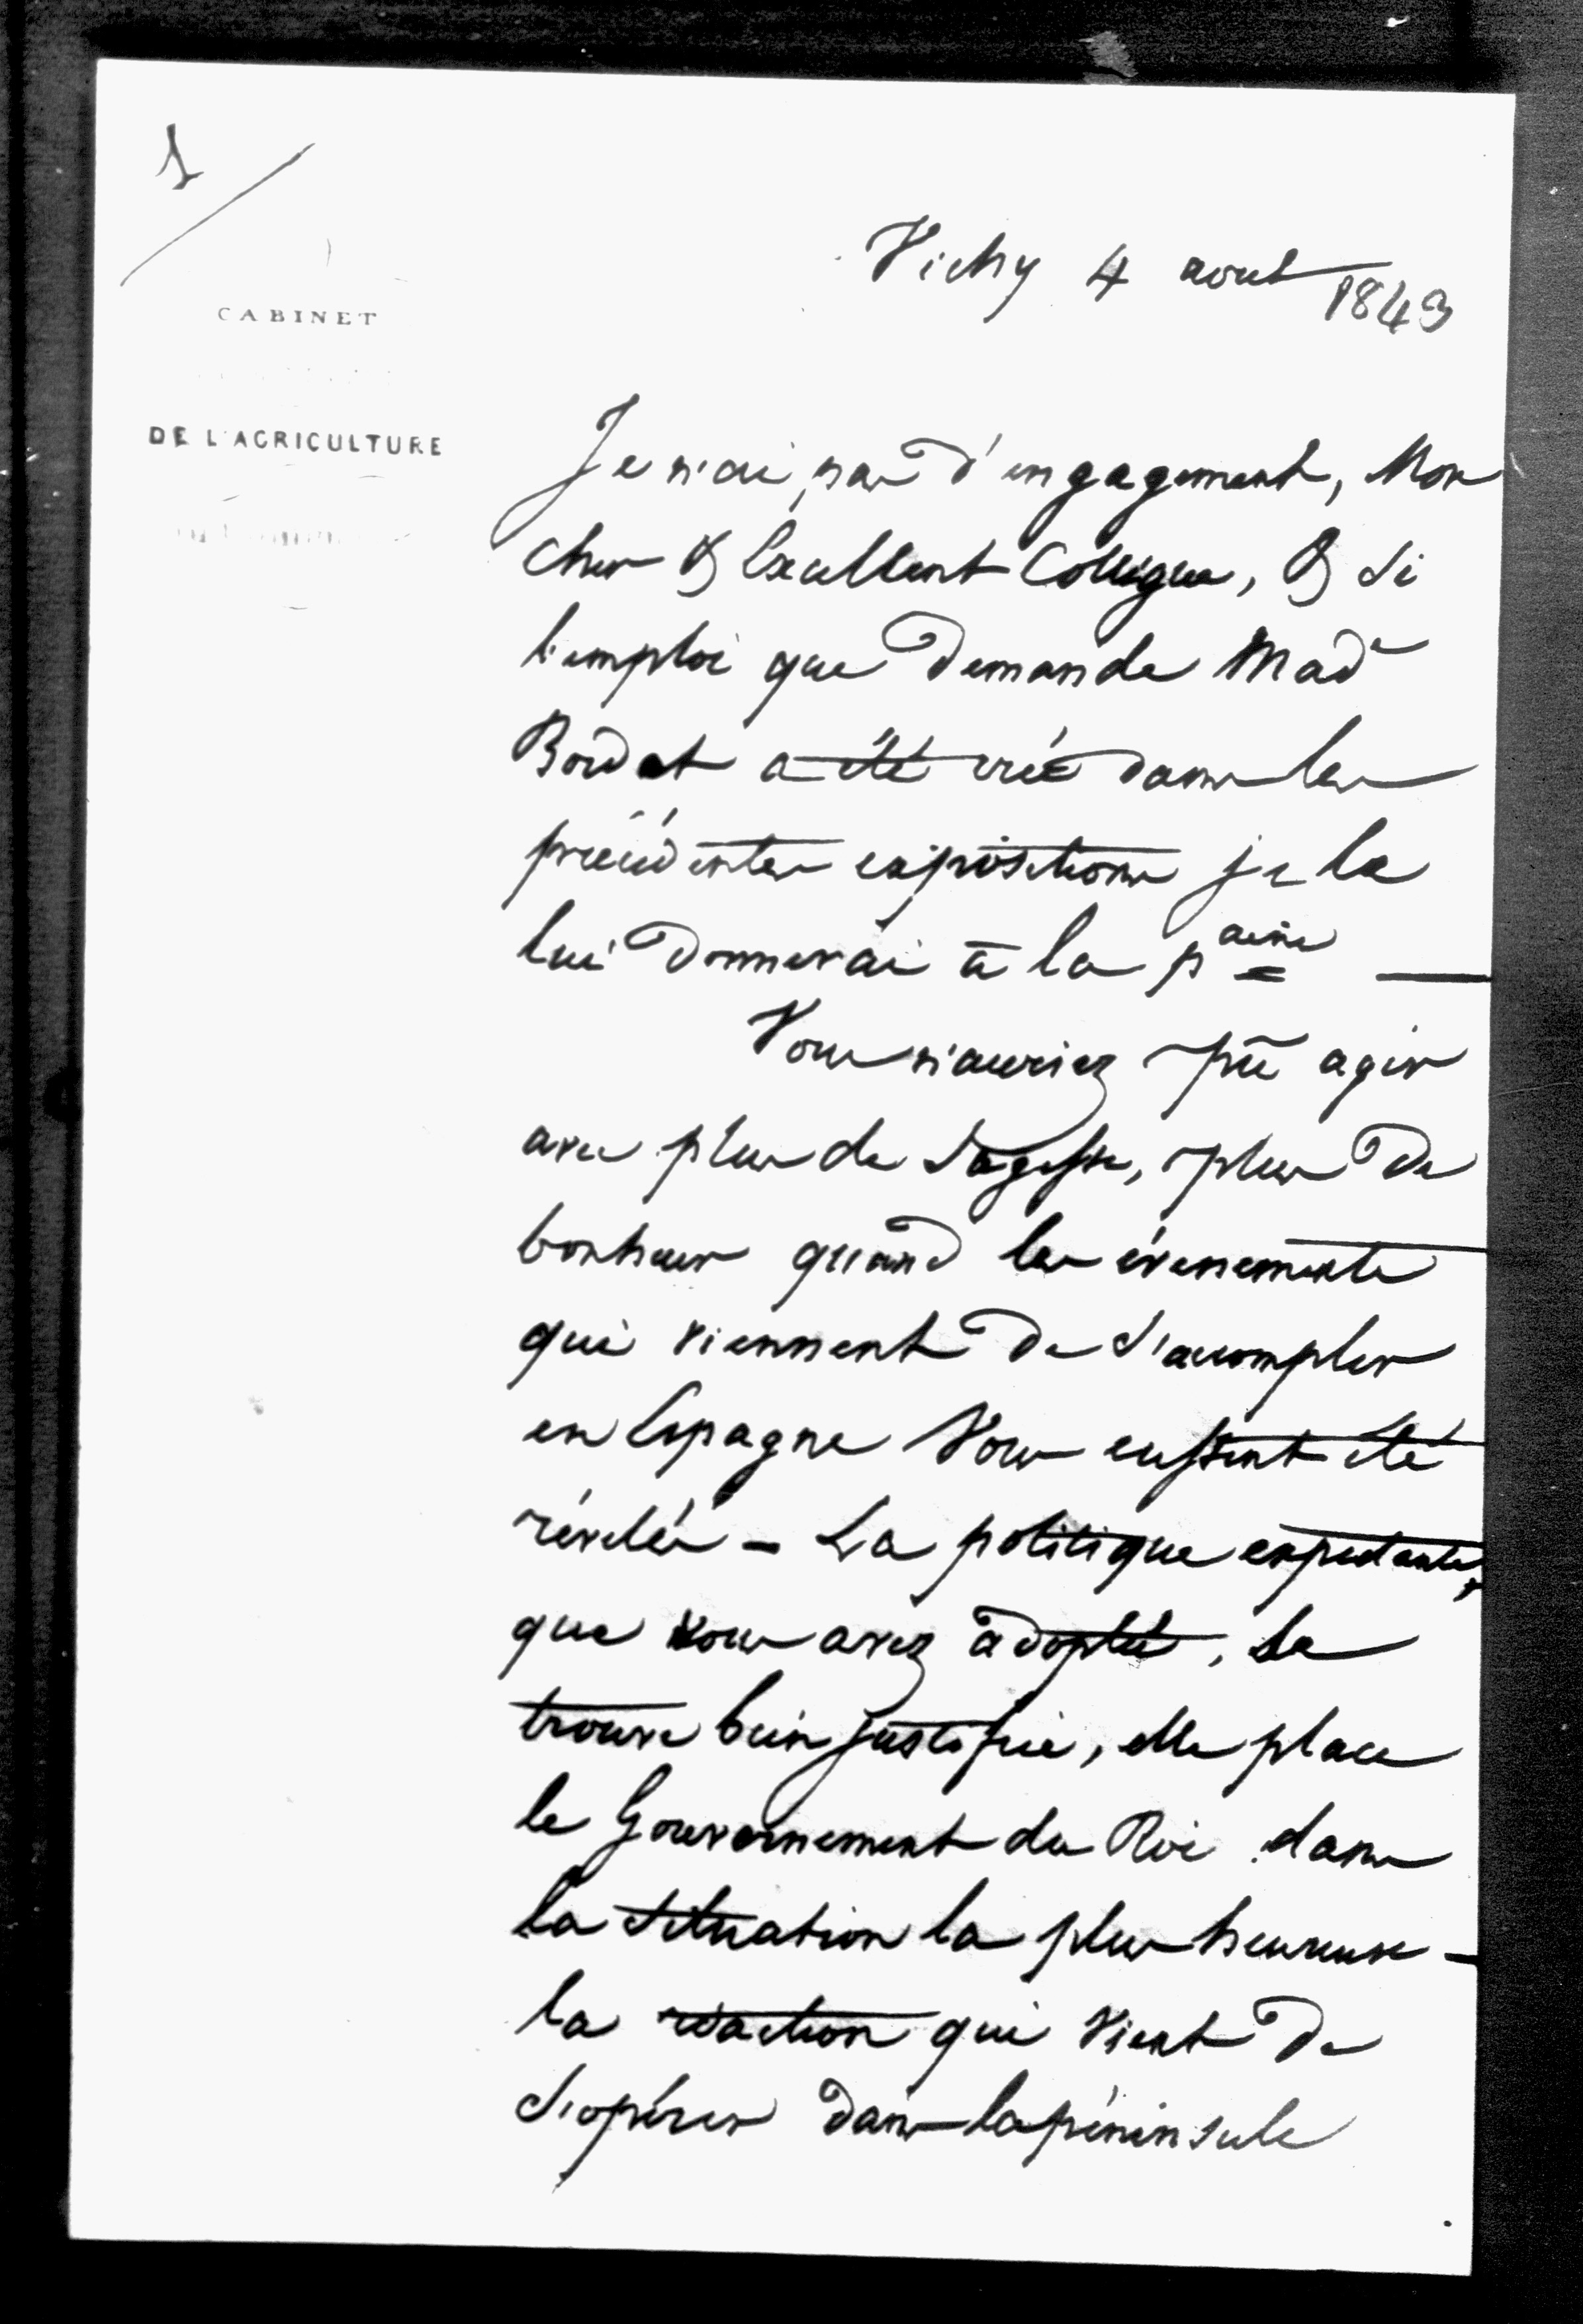 1
Vichy 4 aout 1843
CABINET
DE L'AGRICULTURE
Je n'ai pas d'engagement, Mon
cher & Excellent Collègue, & si
l'emploi que demande Mad^e
Bordet a été créé dans les
précédentes expositions je le
lui donnerai à la p^aine —
Vous n'auriez pu agir
avec plus de sagesse, plus de
bonheur quand les évenements
qui viennent de s'accomplir
en Espagne Vous eussent été
révélés - La politique expectante,
que vous avez adoptée, se
trouve bien justifiée, elle place
le Gouvernement du Roi dans
la situation la plus heureuse -
la réaction qui vient de
s'opérer dans la péninsule